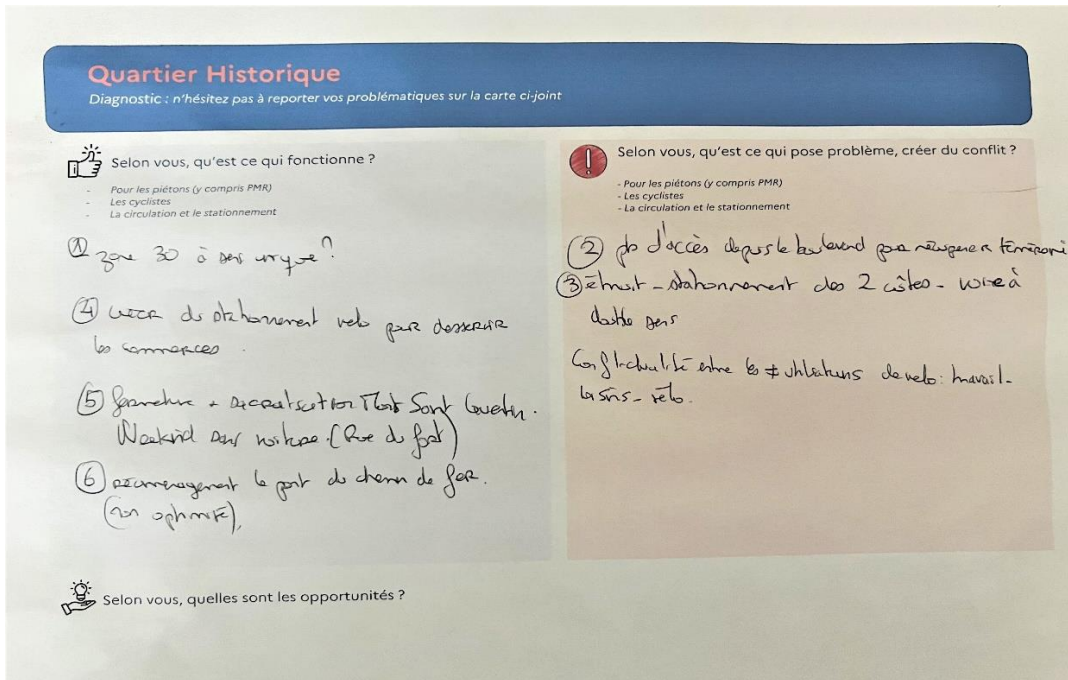 Quartier Historique
Diagnostic : n'hésitez pas à reporter vos problématiques sur la carte ci-joint
Selon vous, qu'est ce qui fonctionne ?
- Pour les piétons (y compris PMR)
- Les cyclistes
- La circulation et le stationnement
① zone 30 à sens unique ?
④ créer du stationnement velo pour desservir
les commerces.
⑤ fermeture + sécurisation Mont Saint Quentin.
Weekend sans voiture. (Rue du fort)
⑥ réaménagement le pont du chemin de fer.
(non optimisé),
Selon vous, qu'est ce qui pose problème, créer du conflit ?
- Pour les piétons (y compris PMR)
- Les cyclistes
- La circulation et le stationnement
② pb d'accès depuis le boulevard pour
③ étroit - stationnement des 2 côtés - voirie à
double sens
Conflictualité entre les ≠ utilisateurs de velo : travail -
loisirs -
Selon vous, quelles sont les opportunités ?